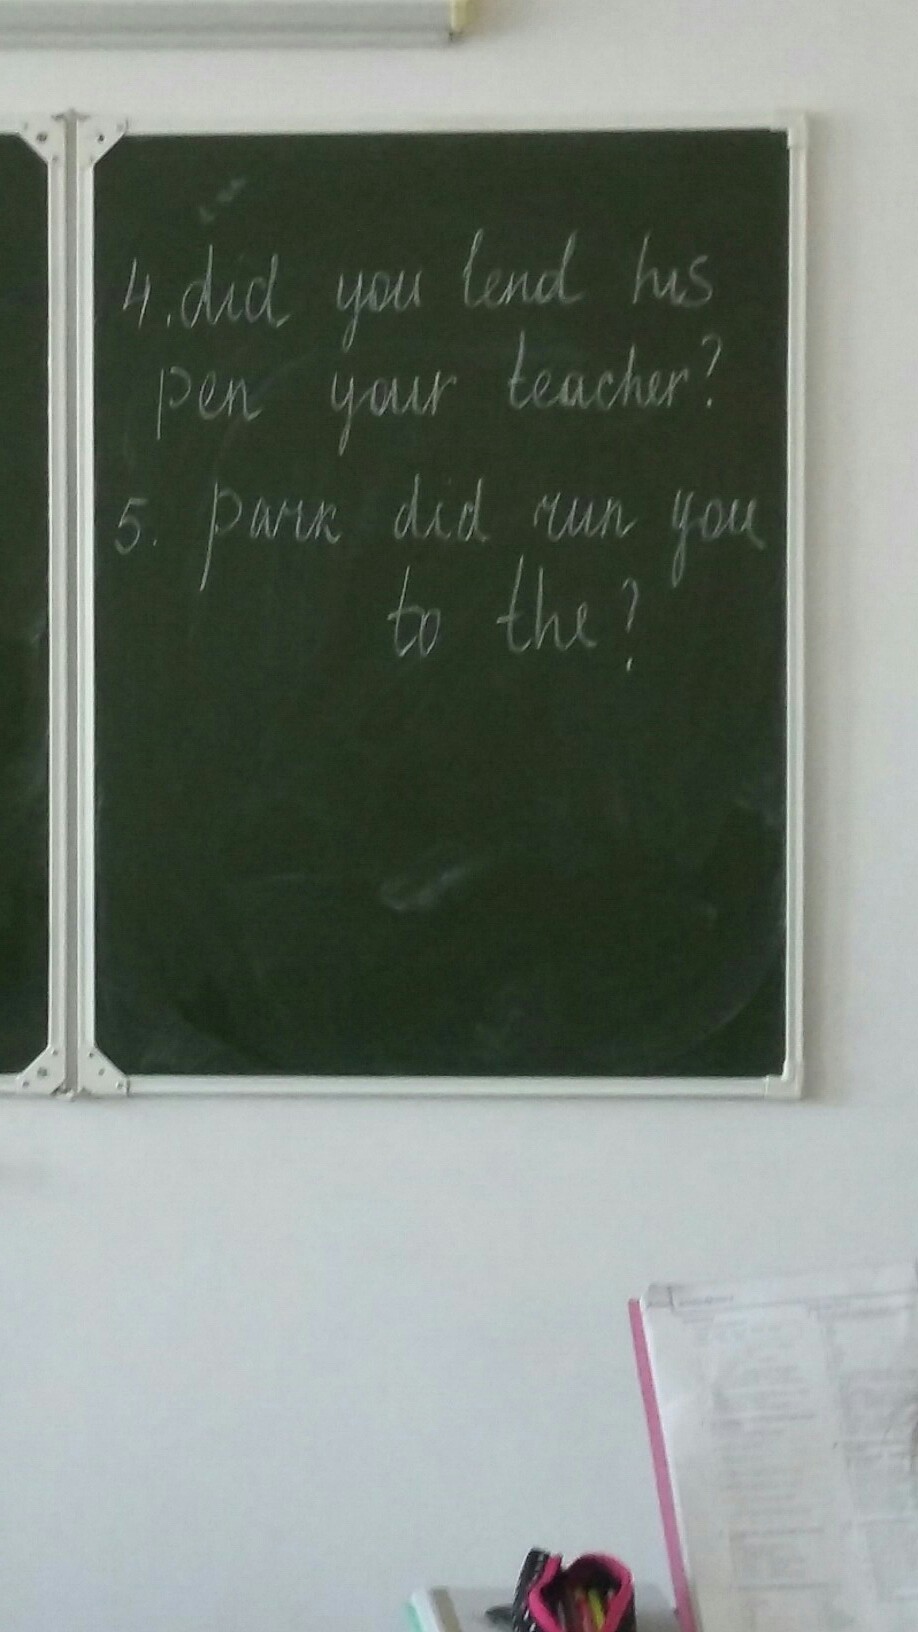 4. did you lend his
pen your teacher?
5. park did run you
to the?